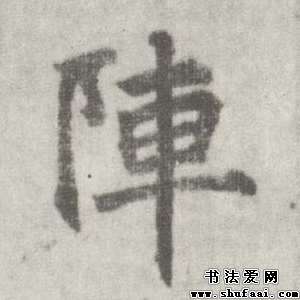 陣
书法爱网
www.shufaai.com